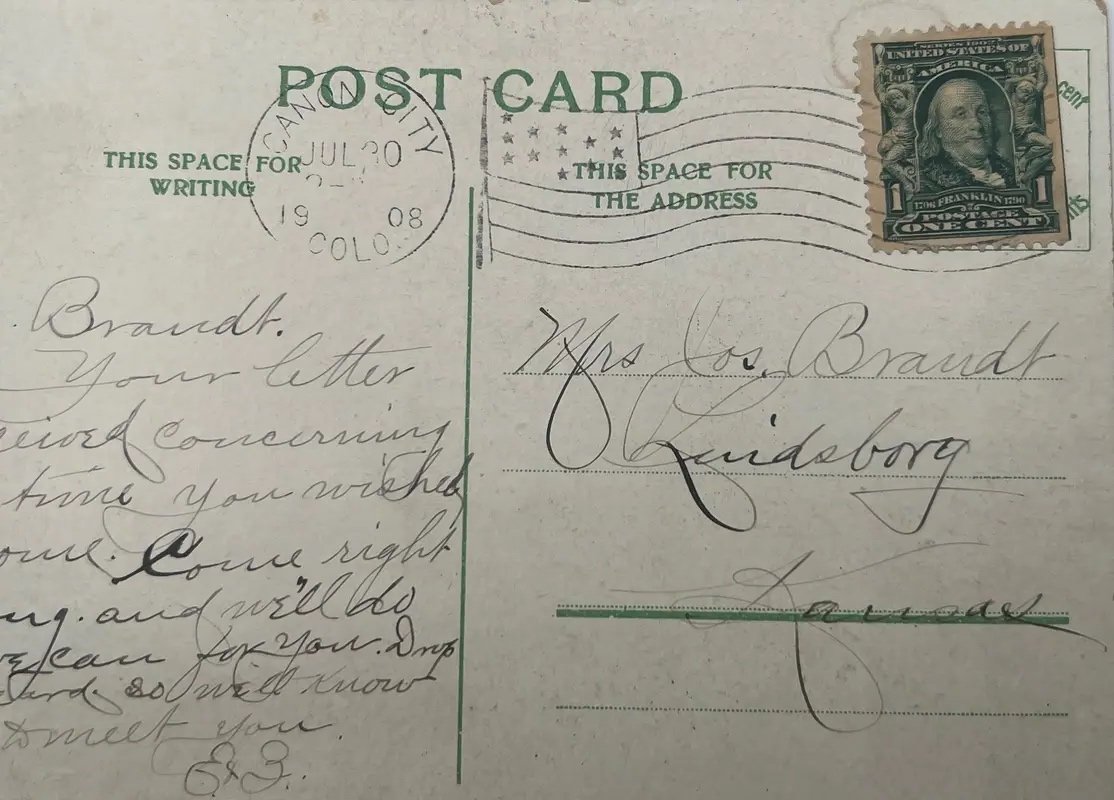 POST CARD
CANON CITY
JUL 30
1908
COLO.
THIS SPACE FOR
WRITING
THIS SPACE FOR
THE ADDRESS
SERIES 1902
UNITED STATES OF
AMERICA
1 1
1706 FRANKLIN 1790
POSTAGE
ONE CENT
cent
nts
Brandt.
Your letter
ceived concerning
time you wished
ome. Come right
ng. and we'll do
we can for you. Drop
card so we'll know
to meet you.
Mrs Jos. Brandt
Lindsborg
Kansas